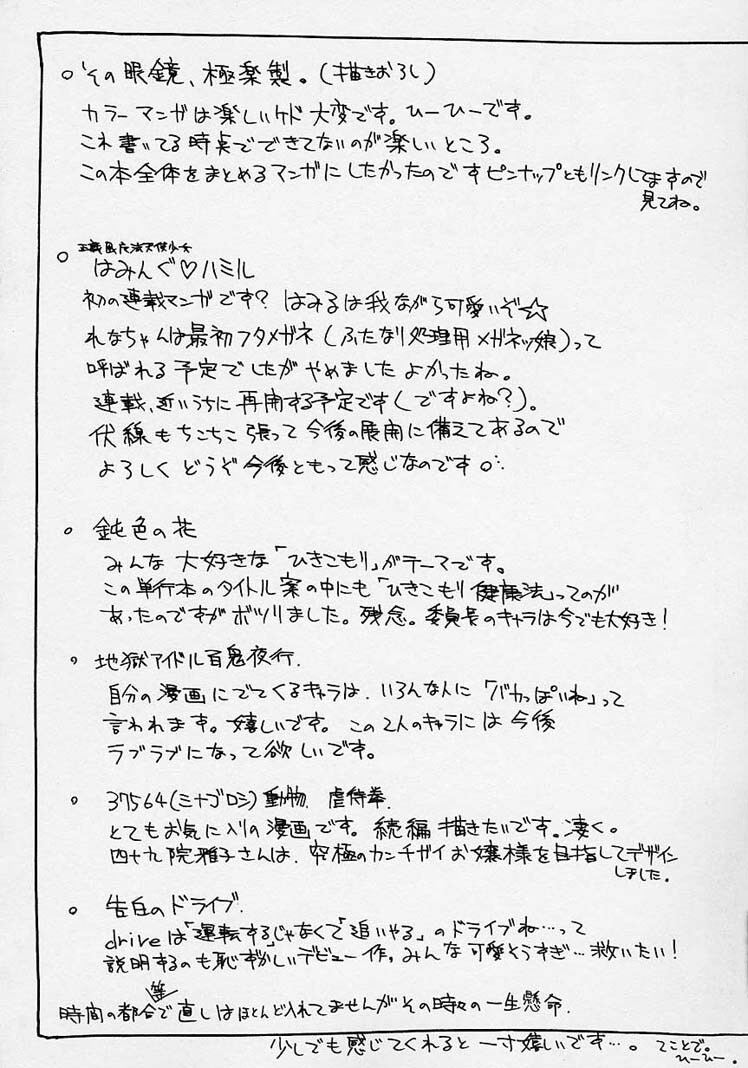 ○ その眼鏡、極楽製。(描きおろし)
カラーマンガは楽しいケド大変です。ひーひーです。
これ書いてる時点でできてないのが楽しいところ。
この本全体をまとめるマンガにしたかったのですピンナップともリンクしてますので
見てね。
○
はみんぐ♡ハミル
初の連載マンガです? はみるは我ながら可愛いぞ☆
れなちゃんは最初フタメガネ(ふたなり処理用メガネッ娘)って
呼ばれる予定でしたがやめましたよかったね。
連載、近いうちに再開する予定です(ですよね?)。
伏線もちこちこ張って今後の展開に備えてあるので
よろしくどうぞ今後ともって感じなのです
○ 鈍色の花
みんな大好きな「ひきこもり」がテーマです。
この単行本のタイトル案の中にも「ひきこもり健康法」ってのが
あったのですがボツりました。残念。委員長のキャラは今でも大好き!
○ 地獄アイドル百鬼夜行.
自分の漫画にでてくるキャラは、いろんな人に「バカっぽいね」って
言われます。嬉しいです。この2人のキャラには今後
ラブラブになって欲しいです。
○ 37564(ミナゴロシ)動物虐待拳.
とてもお気に入りの漫画です。続編描きたいです。凄く。
四十九院雅子さんは、究極のカンチガイお嬢様を目指してデザイン
しました。
○ 告白のドライブ.
driveは「運転する」じゃなくて「追いやる」のドライブね…って
説明するのも恥ずかしいデビュー作。みんな可愛そうすぎ…救いたい!
等
時間の都合で直しはほとんど入れてませんがその時々の一生懸命.
少しでも感じてくれると一寸嬉しいです…。てことで。
ひーひー.